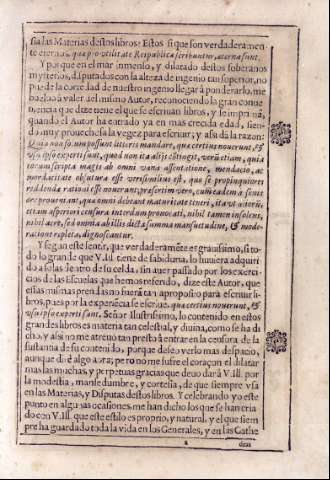 sia las Materias destos libros: Estos si que son verdaderamen-
te eternos, qua pro vtilitate Reipublicæ scribuntur, æterna sunt.
Y porque en el mar inmenso, y dilatado destos soberanos
mysterios, disputados con la alteza de ingenio tan superior, no
puede la cortedad de nuestro ingenio llegar à ponderarlo, me
boeluo à valer del mismo Autor, reconociendo la gran conue
niencia que tiene el que se escriuan libros, y se impriman,
quando el Autor ha entrado ya en mas crecida edad, sien-
do muy prouechosa la vegez para escriuir; y assi dà la razon:
possunt litteris mandare, quæ certius nouerunt, &
vsu ipso experti sunt, quod non ita alijs contingit, verùm etiam, quia
eorum scripta magis ab omni vana assentatione, mendacio, ac
mordacitate obiutura esse verisimilius est, quæ se propinquiores
reddenda rationi esse nouerunt; præsertim vero, cum eadem à senibus
proueniant, qua omni debeant maturitate teneri, ita vt aliorum,
etiam asperiori censura interdum prouocati, nihil tamen insolens,
nihil acre, sed omnia ab illis dicta summa mansuetudine, & mode-
ratione repleta dignoscantur.
Y segun este sentir, que verdaderamẽte es grauissimo, si to-
do lo grande que V. Ill. tiene de sabiduria, lo huuiera adquiri
do à solas dentro de su celda, sin auer passado por los exerci-
cios de las Escuelas que hemos referido, dize este Autor, que
estas mismas prendas no fueran tan aproposito para escriuir li-
bros, pues por la experiẽcia se escriue, qua certius nouerunt, &
vsu ipso experti sunt. Señor Ilustrissimo, lo contenido en estos
grandes libros es materia tan celestial, y diuina, como se ha di
cho; y assi no me atreuo tan presto à entrar en la censura de la
sustancia de su contenido, porque deseo verlo mas despacio,
aunque diré algo atrás; pero no me sufre el coraçon el dilatar
mas las muchas, y perpetuas gracias que deuo dar à V. Ill. por
la modestia, mansedumbre, y cortesia, de que siempre vsa
en las Materias, y Disputas destos libros. Y celebrando yo este
punto en algunas ocasiones me han dicho los que se han cria
do con V. Ill. que este estilo es proprio, y natural, y el que siem
pre ha guardado toda la vida en los Generales, y en las Cathe
a